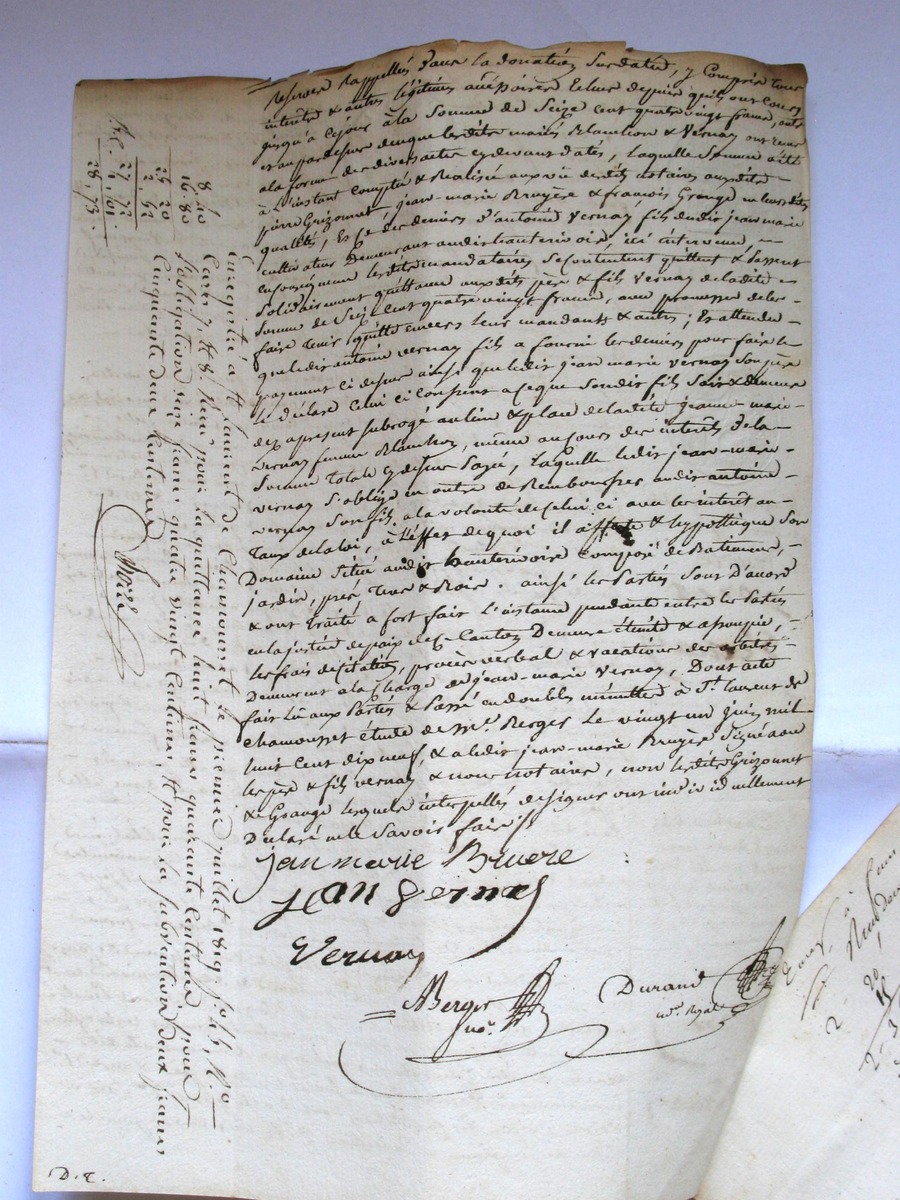 reserves Rappellés dans la donation Susdatée, y Compris tous
intérêts & autres légitimes accessoires Echus depuis qu'ils ont cours
jusqu'à ce jour à la Somme de Seize cent quatre vingt francs, outre
et au par dessus de ce que lesdits mariés Blanchon & Vernay ont reçus
a la forme des divers actes cydevant datés, laquelle Somme a été
à L'instant Comptée & Réalisée aux vu desdits notaires auxdits
pierre Grizonnet, jean-marie Bruyère & françois Grange en leurs dites
qualités, Et ce des deniers d'antoine Vernay fils dudit jean marie
cultivateur Demeurant audit hauterivoire, ici intervenu, —
en conséquence lesdits mandataires Se contentent quittent & Passent
Solidairement quittance auxdits père & fils Vernay de ladite
Somme de Seize cent quatre vingt francs, avec promesse de les
faire tenir quitte envers leurs mandants & autres; Et attendu
que ledit antoine vernay fils a fourni les deniers pour faire le
payement ci dessus ainsi que ledit jean marie vernay Son père
le déclare Celui ci consent à ce que Sondit fils Soit & demeure
dez apresent Subrogé au lieu & place de ladite Jeanne-marie
vernay femme Blanchon, même au cours des intérêts de la
Somme totale cy dessus Payée, Laquelle ledit jean-marie
vernay S'oblige en outre de Rembourser audit antoine
vernay Son fils, à la volonté de Celui ci avec les intérêt au
Taux de la loi, à L'effet de quoi il affecte & hypothèque Son
Domaine Situé audit hauterivoire Composé de Batiments,
jardin, prés Terres & Bois. ainsi les Parties Sont D'accord
& ont Traité a fort fait L'instance pendante entre les Parties
en la justice de paix de ce Canton Demeure éteinte & assoupie,
les frais de citation, procès verbal & vacations des arbitres
Demeurent a la Charge de jean-marie Vernay, Dont acte
fait Lu aux Parties & Passé en doubles minuttes à St. laurent de
chamousset étude de Me. Berger Le vingt un juin mil
huit Cent dix neuf, & a ledit jean-marie Bruyère Signé avec
les père & fils vernay & nous notaires, non lesdits Grizonnet
& Grange lesquels interpellés de signer ont individuellement
Déclaré ne le Savoir faire
jean marie Bruere
jean vernay
Vernay
Berger
no.re
Durand
no.re Royal
Enregistré à St Laurent de Chamousset le premier juillet 1819, fo. 46, Ro.
Cases 7 & 8. Reçu pour la quittance huit francs quarante Centimes, pour
l'obligation seize francs quatre vingt Centimes, & pour la subvention deux francs
Cinquante deux Centimes
8 40
16 80
25 20
2 52
27 72
1 01
28,73
D. E.
2 20